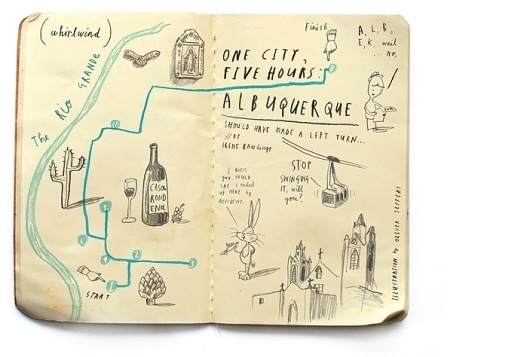 (whirlwind)
The Rio GRANDE
CASA
ROND
ENA
START
Finish
ONE CITY,
FIVE HOURS:
ALBUQUERQUE
SHOULD HAVE MADE A LEFT TURN...
// BY
IRENE RAWLINGS
A, L, B,
E, K, wait
... no,
STOP
SWINGING
IT, will
you?
I GUESS
YOU COULD
SAY I ended
up HERE by
ACCIDENT.
ILLUSTRATION by OLIVER JEFFERS